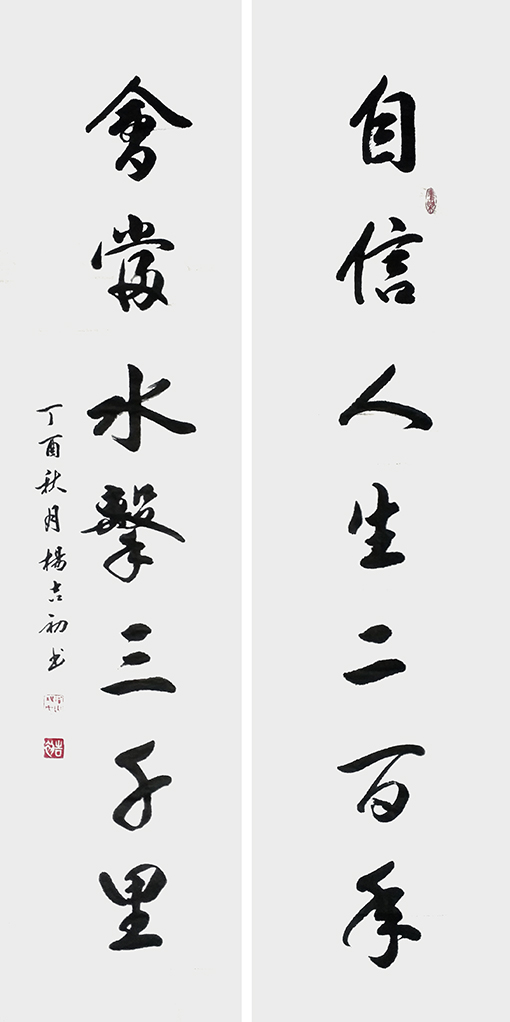 自信人生二百年
會當水擊三千里
丁酉秋月楊吉初书